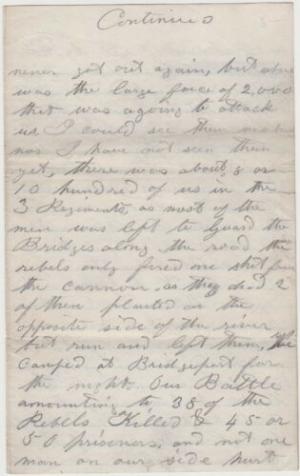 Continues
never got out again, but
was the large force of 2,000
that was agoing to attack
us I could see them
nor I have not seen them
yet, there was about 8 or
10 hundred of us in the
3 Regiments, as most of the
men was left to guard the
Bridges along the road the
rebels only fired one shot from
the cannon, as they had 2
of them planted on the
opposite side of the river
but run and left them, We
camped at Bridgeport for
the night. Our Battle
amounting to 38 of the
Rebels Killed & 45 or
50 prisoners, and not one
man on our side hurt